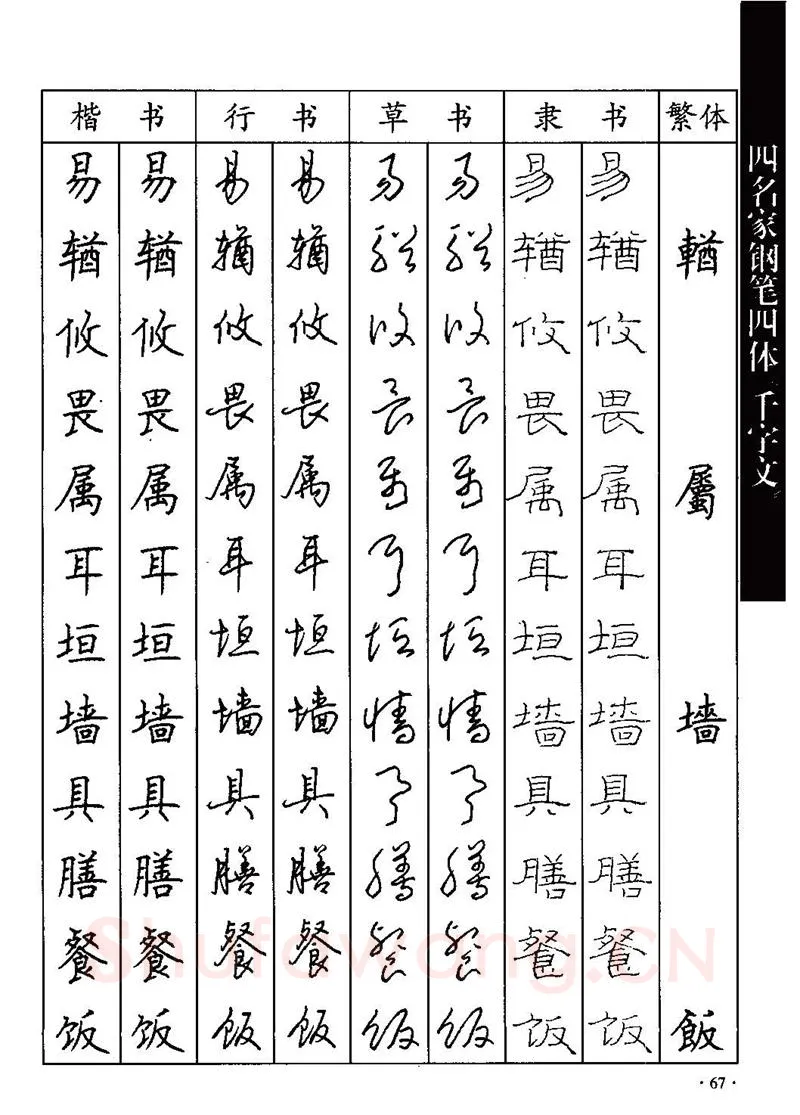 楷书 行书 草书 隶书 繁体
易 易 易 易 易 易 易 易
𬨎 𬨎 𬨎 𬨎 𬨎 𬨎 𬨎 𬨎 輶
攸 攸 攸 攸 攸 攸 攸 攸
畏 畏 畏 畏 畏 畏 畏 畏
属 属 属 属 属 属 属 属 屬
耳 耳 耳 耳 耳 耳 耳 耳
垣 垣 垣 垣 垣 垣 垣 垣
墙 墙 墙 墙 墙 墙 墙 墙 墻
具 具 具 具 具 具 具 具
膳 膳 膳 膳 膳 膳 膳 膳
餐 餐 餐 餐 餐 餐 餐 餐
饭 饭 饭 饭 饭 饭 饭 饭 飯
四名家钢笔四体千字文
Shufawang.CN
·67·